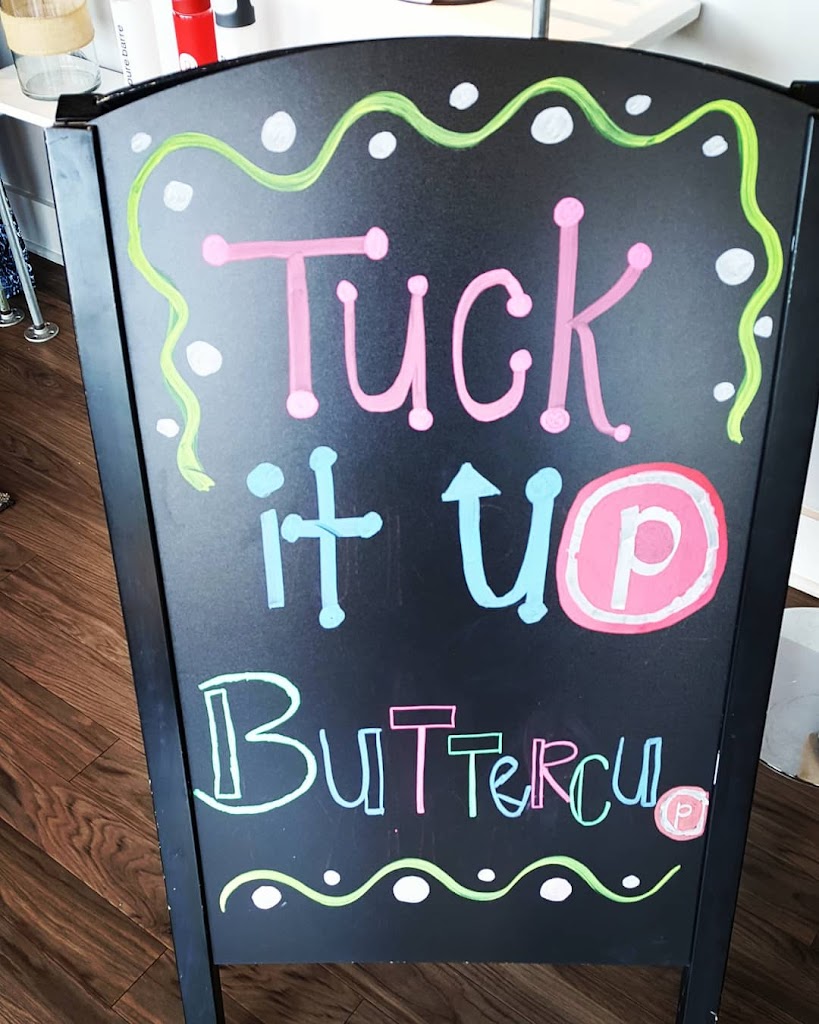 pure barre
Tuck
it up
Buttercup